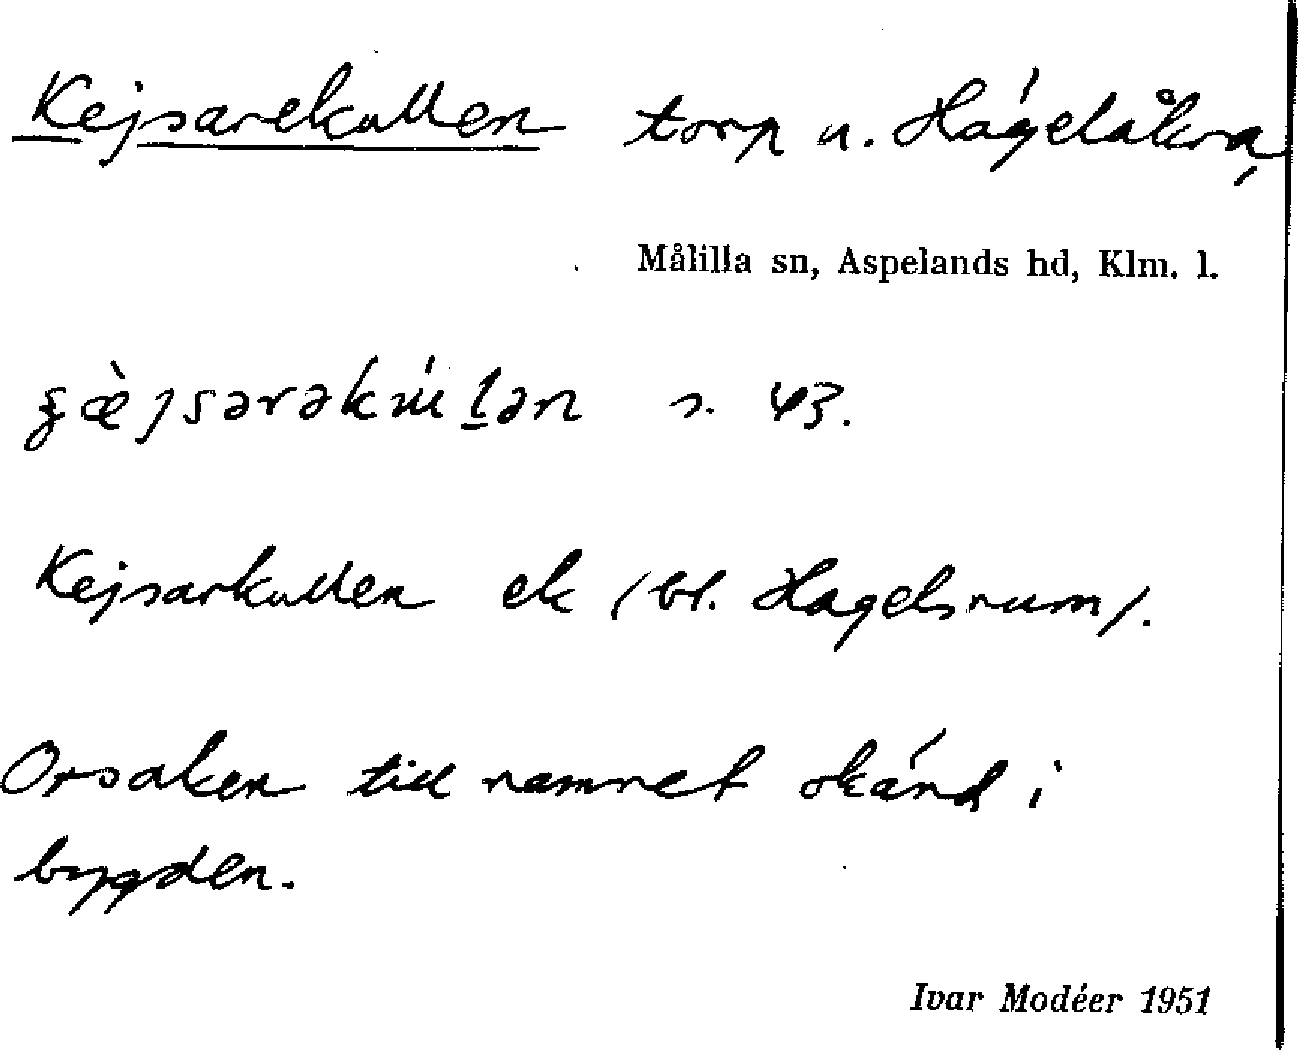 Kejsarekullen torp u. Hágelåkra,
Målilla sn, Aspelands hd, Klm. l.
s. 43.
Kejsarkullen ek (bl. Hagelsrum).
Orsaken till namnet okänd i
bygden.
Ivar Modéer 1951